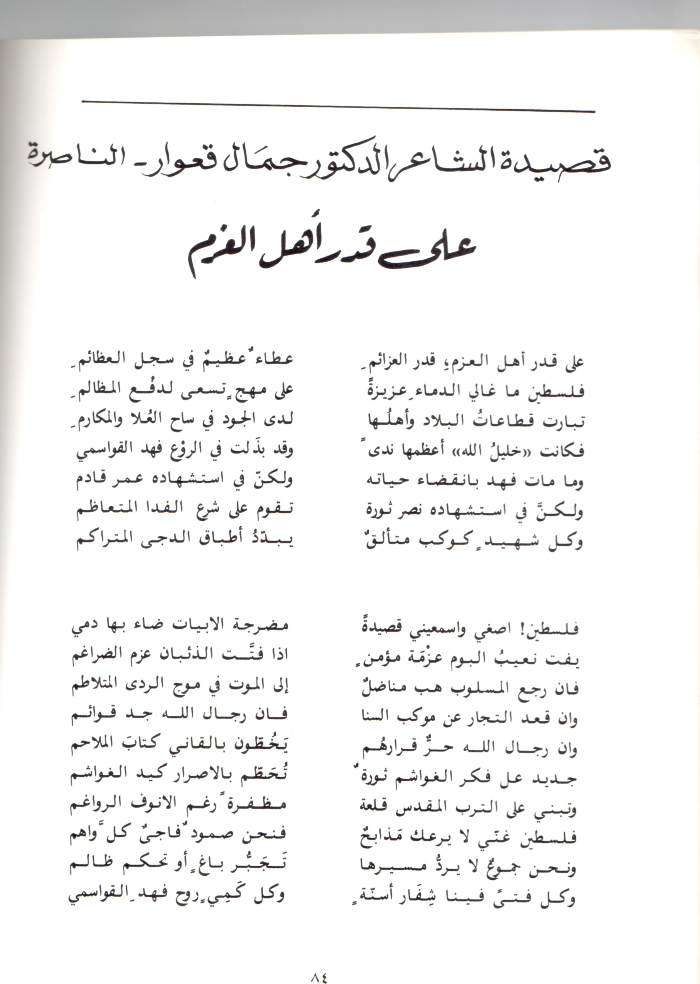 قصيدة الشاعر الدكتور جمَال قعوار - الناصرة
على قدر أهل العزم
على قدر أهل العزم، قدر العزائمِ عطاءٌ عظيمٌ في سجل العظائمِ
فلسطين ما غالي الدماء عزيزةً على مهجٍ تسعى لدفْع المظالمِ
تبارت قطاعاتُ البلاد وأهلُها لدى الجود في ساح العُلا والمكارمِ
فكانت «خليلُ الله» أعظمها ندىً وقد بذَلت في الروْع فهد القواسمي
وما مات فهد بانقضاء حياته ولكنّ في استشهاده عمر قادم
ولكنَّ في استشهاده نصر ثورة تقوم على شرع الفدا المتعاظم
وكل شهيدٍ كوكب متألقٌ يبدّدُ أطباق الدجى المتراكم
فلسطين! اصغي واسمعيني قصيدةً مضرجة الابيات ضاء بها دمي
يفت نعيبُ البوم عزْمَة مؤمنٍ اذا فتَّت الذئبان عزم الضراغم
فان رجع المسلوب هب مناضلٌ إلى الموت في موج الردى المتلاطم
وان قعد التجار عن موكب السنا فان رجال الله جد قوائم
وان رجال الله حرٌّ قرارهُم يَخُطّون بالقاني كتابَ الملاحم
جديد عل فكر الغواشم ثورةٌ تُحَطّم بالاصرار كيد الغواشم
وتبني على الترب المقدس قلعة مظفرةً رغم الانوف الرواغم
فلسطين غنّي لا يرعك مَذابحٌ فنحن صمودٌ فاجئٌ كلَّ واهم
ونحن جموعٌ لا يردُّ مسيرها تَجَبُّر باغٍ أو تحكم ظالم
وكل فتىً فينا شِفَار أسنّةٍ وكل كَمِيٍ روح فهدِ القواسمي
٨٤